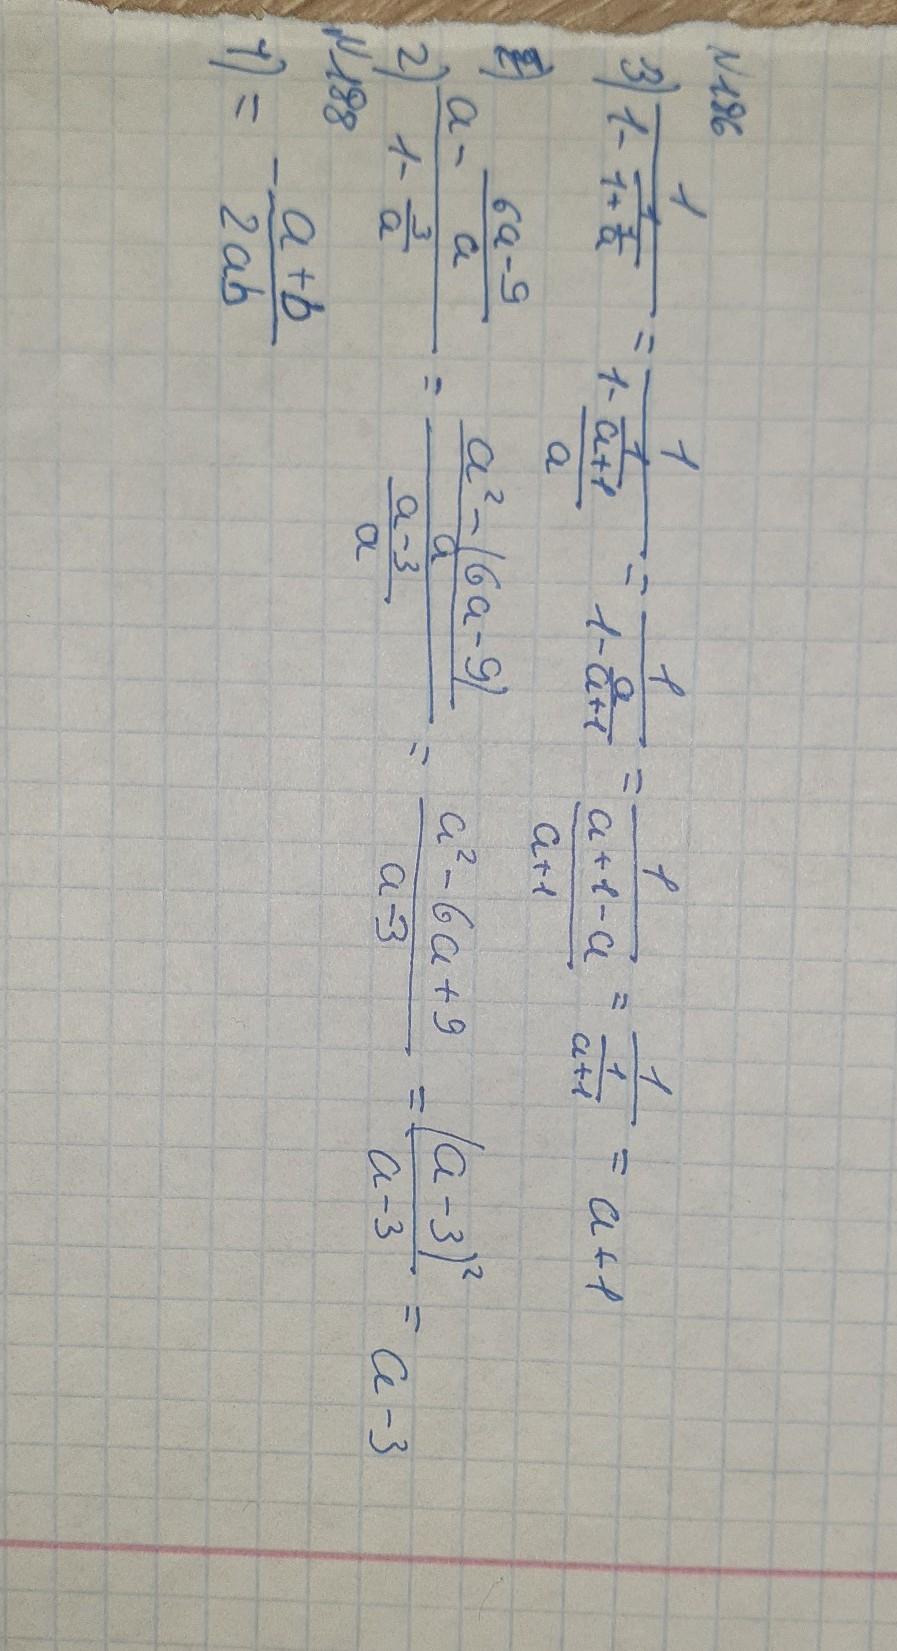 N186
3) 1/(1-1/(1+1/a)) = 1/(1-1/((a+1)/a)) = 1/(1-a/(a+1)) = 1/((a+1-a)/(a+1)) = 1/(1/(a+1)) = a+1
2) (a-(6a-9)/a)/(1-3/a) = ((a²-(6a-9))/a)/((a-3)/a) = (a²-6a+9)/(a-3) = (a-3)²/(a-3) = a-3
N188
1) = -(a+b)/(2ab)